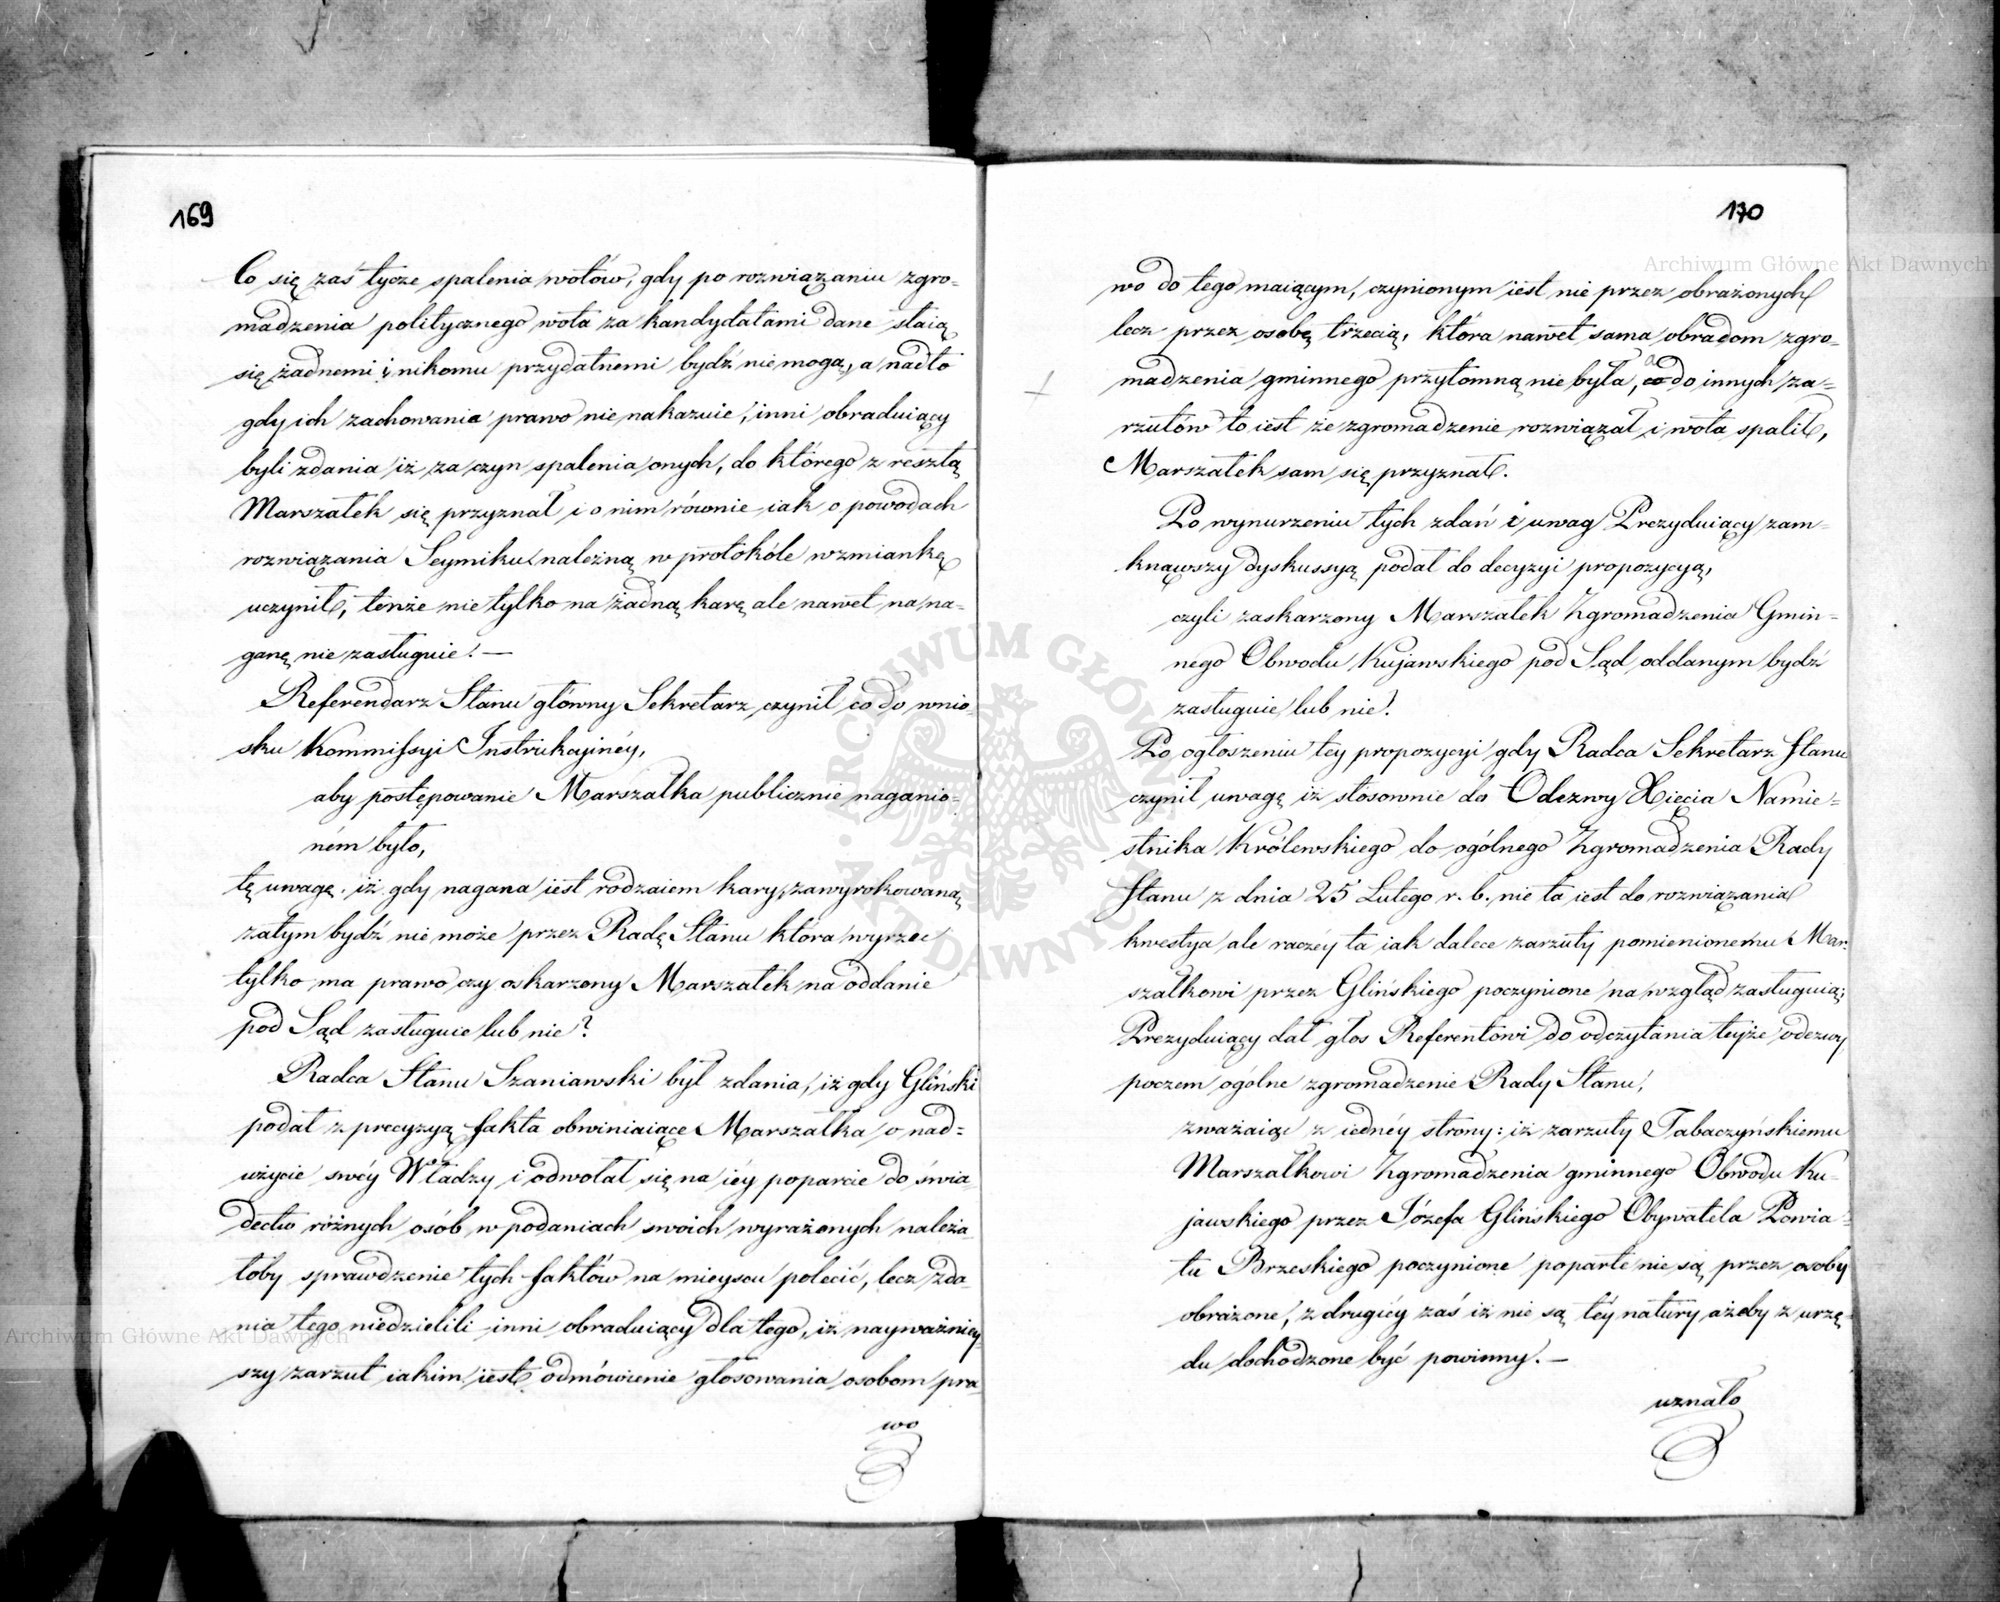 169
Co się zaś tycze spalenia wotów, gdy po rozwiązaniu zgro-
madzenia politycznego wota za kandydatami dane staią
się żadnemi i nikomu przydatnemi bydź nie mogą, a nadto
gdy ich zachowania prawo nie nakazuie, inni obraduiący
byli zdania iż za czyn spalenia onych, do którego z resztą
Marszałek się przyznał i o nim równie iak o powodach
rozwiązania Seymiku należną w protokóle wzmiankę
uczynił, tenże nie tylko na żadną karę ale nawet na na-
ganę nie zasługuie. —
Referendarz Stanu główny Sekretarz czynił co do wnio-
sku Kommissyi Instrukcyinéy,
aby postępowanie Marszałka publicznie naganio-
ném było,
tę uwagę, iż gdy nagana iest rodzaiem kary, zawyrokowaną
zatym bydź nie może przez Radę Stanu która wyrzec
tylko ma prawo czy oskarzony Marszałek na oddanie
pod Sąd zasługuie lub nie?
Radca Stanu Szaniawski był zdania, iż gdy Gliński
podał z precyzyą fakta obwiniaiące Marszałka o nad-
użycie swéy Władzy i odwołał się na iéy poparcie do świa-
dectw różnych osób w podaniach swoich wyrażonych należa
łoby sprawdzenie tych faktów na mieyscu polecić, lecz zda-
nia tego niedzielili inni obraduiący dla tego, iż nayważniey-
szy zarzut iakim iest odmówienie głosowania osobom pra
wo
170
wo do tego maiącym, czynionym iest nie przez obrażonych
lecz przez osobę trzecią, która nawet sama obradom zgro-
madzenia gminnego przytomną nie była, a
co do innych za-
rzutów to iest że zgromadzenie rozwiązał i wota spalił,
Marszałek sam się przyznał.
Po wynurzeniu tych zdań i uwag Prezyduiący zam-
knąwszy dyskussyą podał do decyzyi propozycyą,
czyli zaskarzony Marszałek Zgromadzenia Gmin-
nego Obwodu Kujawskiego pod Sąd oddanym bydź
zasługuie lub nie?
Po ogłoszeniu tey propozycyi gdy Radca Sekretarz Stanu
czynił uwagę iż stosownie do Odezwy Xięcia Namie-
stnika Królewskiego do ogólnego Zgromadzenia Rady
Stanu z dnia 25 Lutego r. b. nie ta iest do rozwiązania
kwestya ale raczéy ta iak dalece zarzuty pomienionemu Mar-
szałkowi przez Glińskiego poczynione na wzgląd zasługuią;
Prezyduiący dał głos Referentowi do odczytania teyże odezwy
poczem ogólne zgromadzenie Rady Stanu,
zważaiąc z iednéy strony: iż zarzuty Tabaczyńskiemu
Marszałkowi Zgromadzenia gminnego Obwodu Ku-
jawskiego przez Józefa Glińskiego Obywatela Powia-
tu Brzeskiego poczynione poparte nie są przez osoby
obrażone, z drugiéy zaś iż nie są téy natury ażeby z urzę-
du dochodzone być powinny. —
uznało
Archiwum Główne Akt Dawnych
Archiwum Główne Akt Dawnych
ARCHIWUM GŁÓWNE AKT DAWNYCH